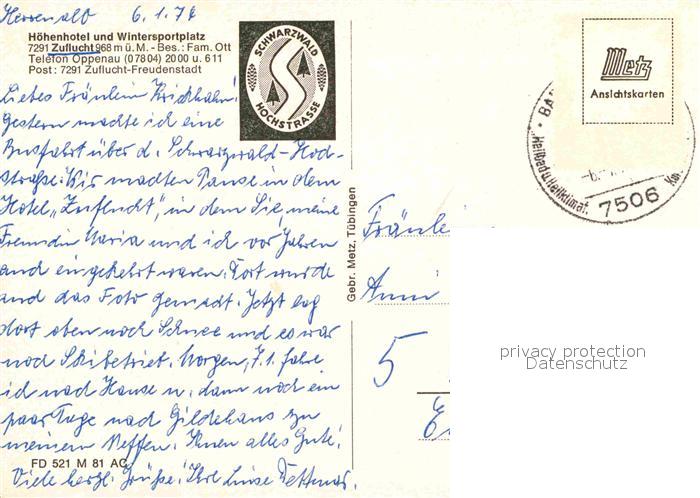 Herrenalb 6.1.74
Höhenhotel und Wintersportplatz
7291 Zuflucht 968 m ü. M. - Bes.: Fam. Ott
Telefon Oppenau (07804) 2000 u. 611
Post: 7291 Zuflucht-Freudenstadt
SCHWARZWALD
HOCHSTRASSE
Metz
Ansichtskarten
7506
Liebes Fräulein
Gestern machte ich eine
Busfahrt über d. Schwarzwald-Hoch-
straße. Wir machten Pause in dem
Hotel „Zuflucht", in dem Sie, meine
Freundin Maria und ich vor Jahren
auch eingekehrt waren. Dort wurde
auch das Foto gemacht. Jetzt lag
dort oben noch Schnee und es war
noch Skibetrieb. Morgen, 7.1. fahre
ich nach Hause u. dann noch ein
paar Tage nach Gildehaus zu
meinem Neffen. Ihnen alles Gute!
Viele herzl. Grüße! Ihre Luise
FD 521 M 81 AC
Gebr. Metz, Tübingen
Fräulei
Anni
5
privacy protection
Datenschutz